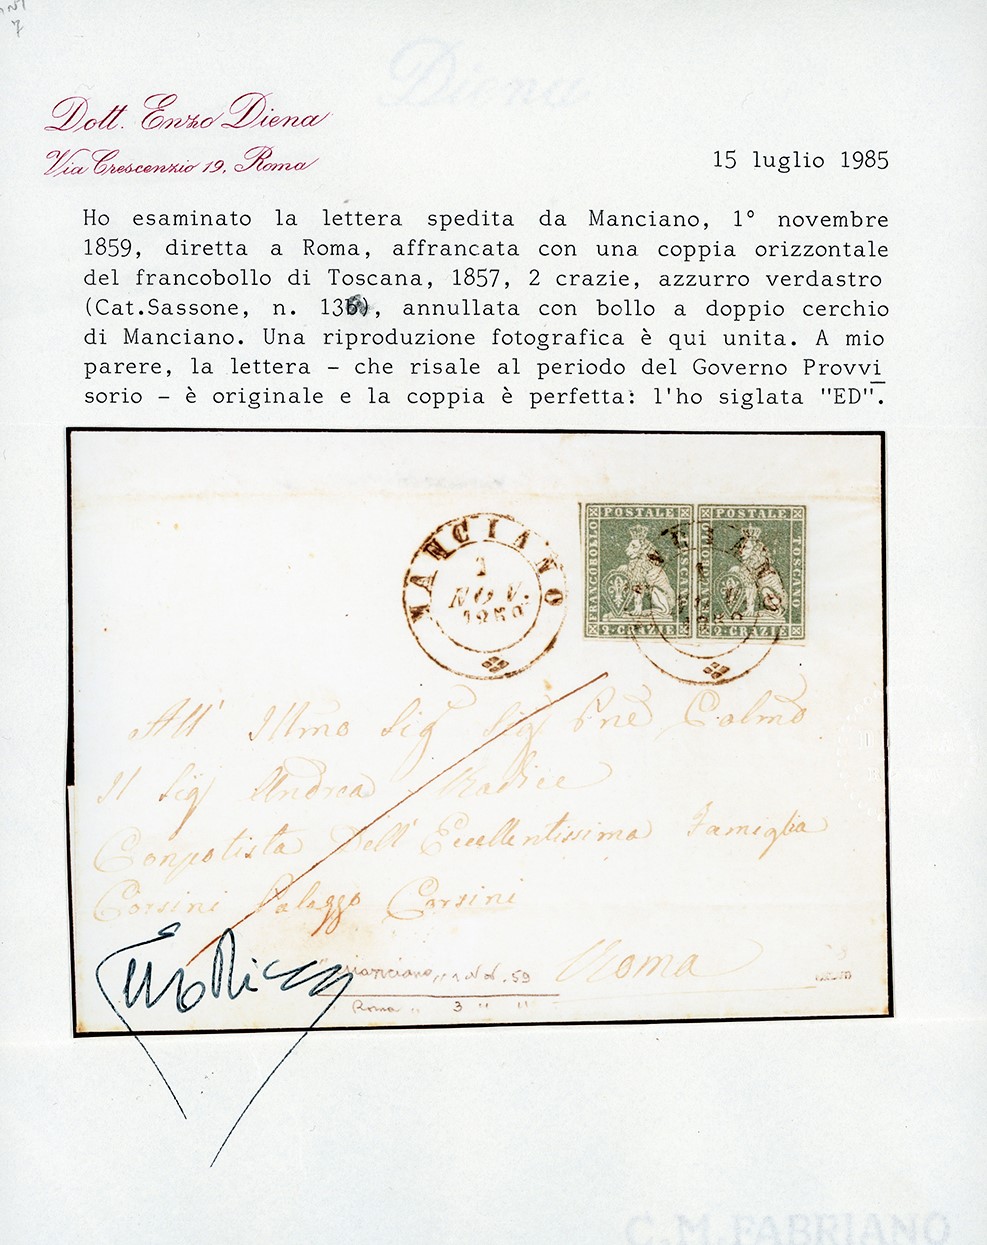 Diena
Dott. Enzo Diena
Via Crescenzio 19, Roma
15 luglio 1985
Ho esaminato la lettera spedita da Manciano, 1° novembre
1859, diretta a Roma, affrancata con una coppia orizzontale
del francobollo di Toscana, 1857, 2 crazie, azzurro verdastro
(Cat.Sassone, n. 13), annullata con bollo a doppio cerchio
di Manciano. Una riproduzione fotografica è qui unita. A mio
parere, la lettera - che risale al periodo del Governo Provvi
sorio - è originale e la coppia è perfetta: l'ho siglata "ED".
MANCIANO
1
NOV.
1859
FRANCOBOLLO POSTALE TOSCANO
2·CRAZIE
FRANCOBOLLO POSTALE TOSCANO
2·CRAZIE
All' Illmo Sig Sig Pne Colmo
Il Sig Andrea Radice
Conpotista Dell' Eccellentissima Famiglia
Corsini Palazzo Corsini
Roma
Manciano, 1 Nov. 59
Roma " 3 " "
C.M.FABRIANO